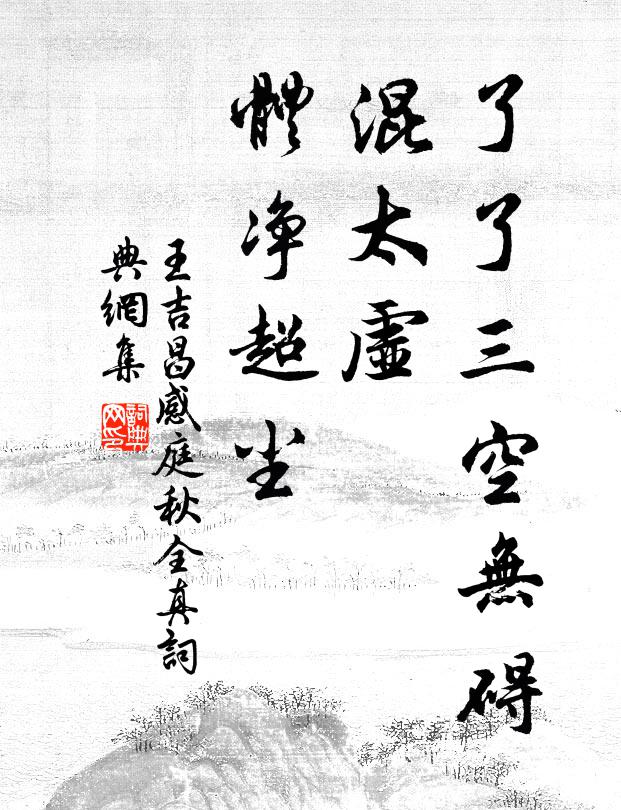 了了三空無碍
混太虛
體净超尘
王吉昌感庭秋全真詞
典網集
詞典网印